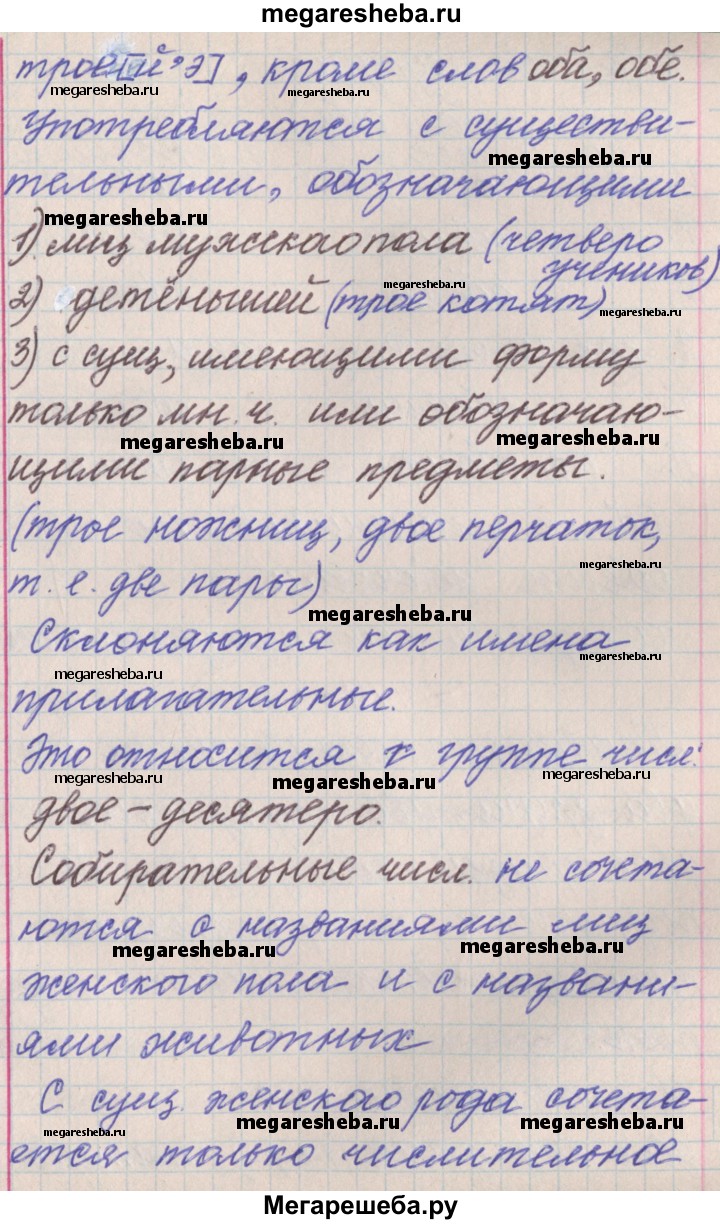 megaresheba.ru
трое [й'э], кроме слов оба, обе.
megaresheba.ru megaresheba.ru
Употребляются с существи-
megaresheba.ru
тельными, обозначающими
megaresheba.ru
1) лиц мужскаопола (четверо
учеников)
megaresheba.ru
2) детёнышей (трое котят)
megaresheba.ru
3) с сущ, имеющими форму
только мн. ч. или обозначаю-
megaresheba.ru megaresheba.ru
щими парные предметы.
(трое ножниц, двое перчаток,
megaresheba.ru
т. е. две пары)
megaresheba.ru
Склоняются как имена
megaresheba.ru megaresheba.ru
прилагательные.
Это относится к группе числ.
megaresheba.ru megaresheba.ru megaresheba.ru
двое – десятеро.
Собирательные числ. не сочета-
ются с названиями лиц
megaresheba.ru megaresheba.ru
женского пола и с названи-
ями животных
С сущ. женского рода сочета-
megaresheba.ru megaresheba.ru megaresheba.ru
ется только числительное
Мегарешеба.ру